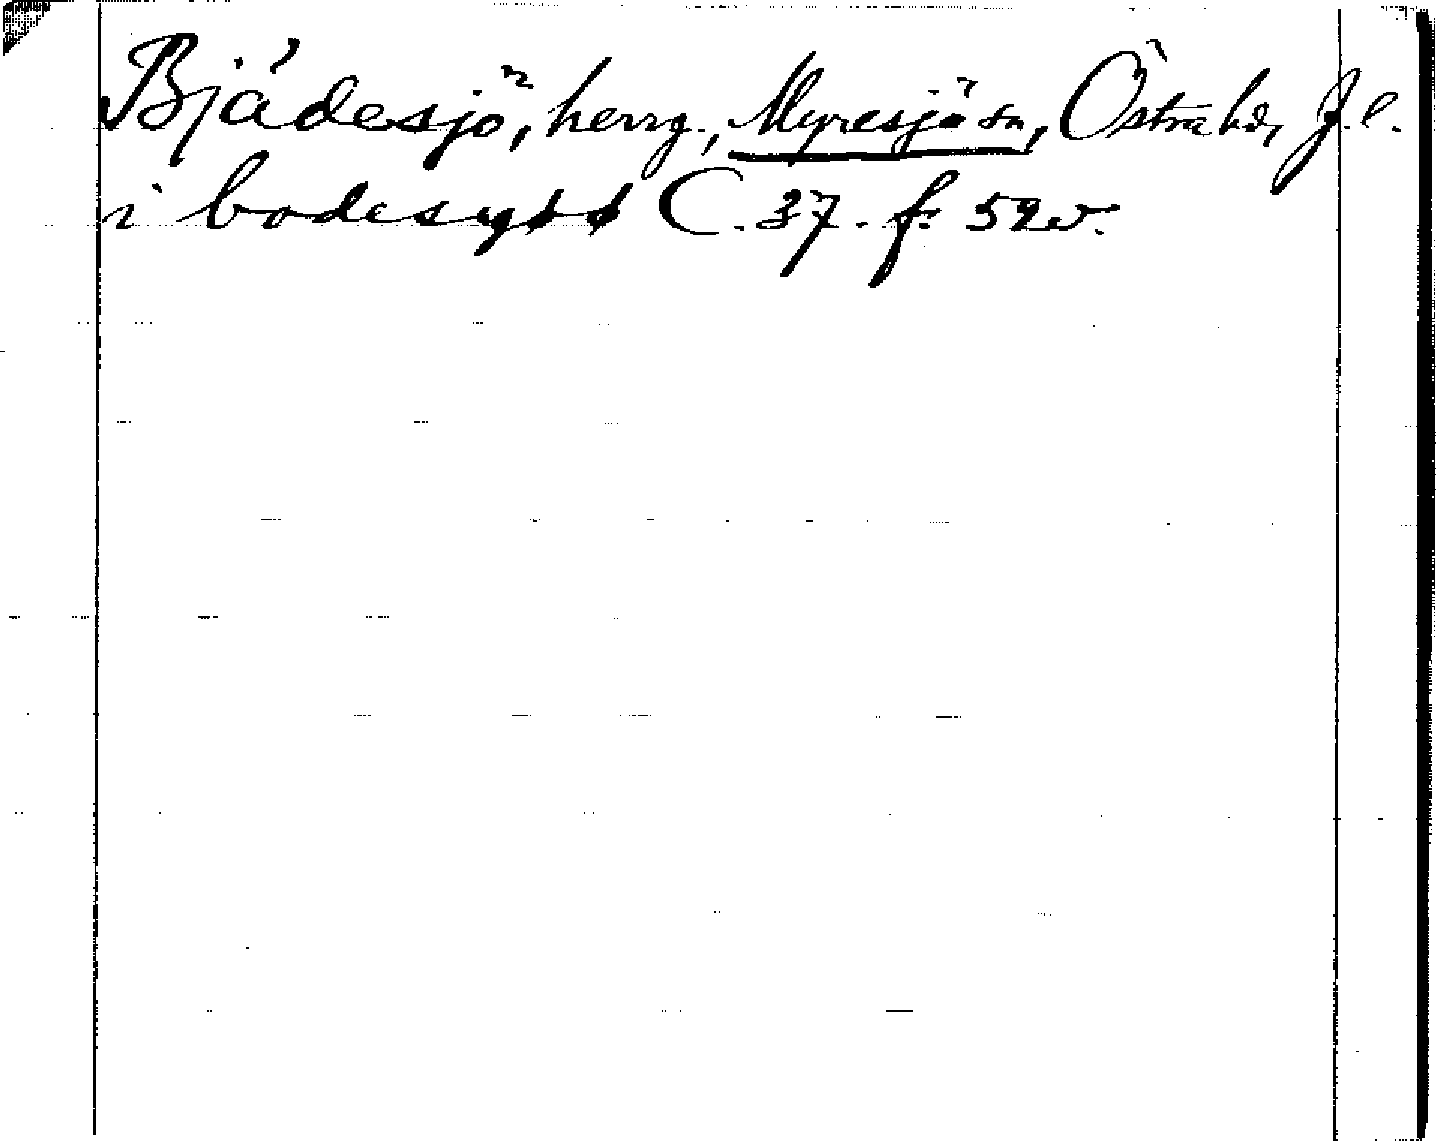 Bjädesjö, herrg., Myresjö sn, Östra hd, J.l.
i bodesyøø C. 37. f: 52v.